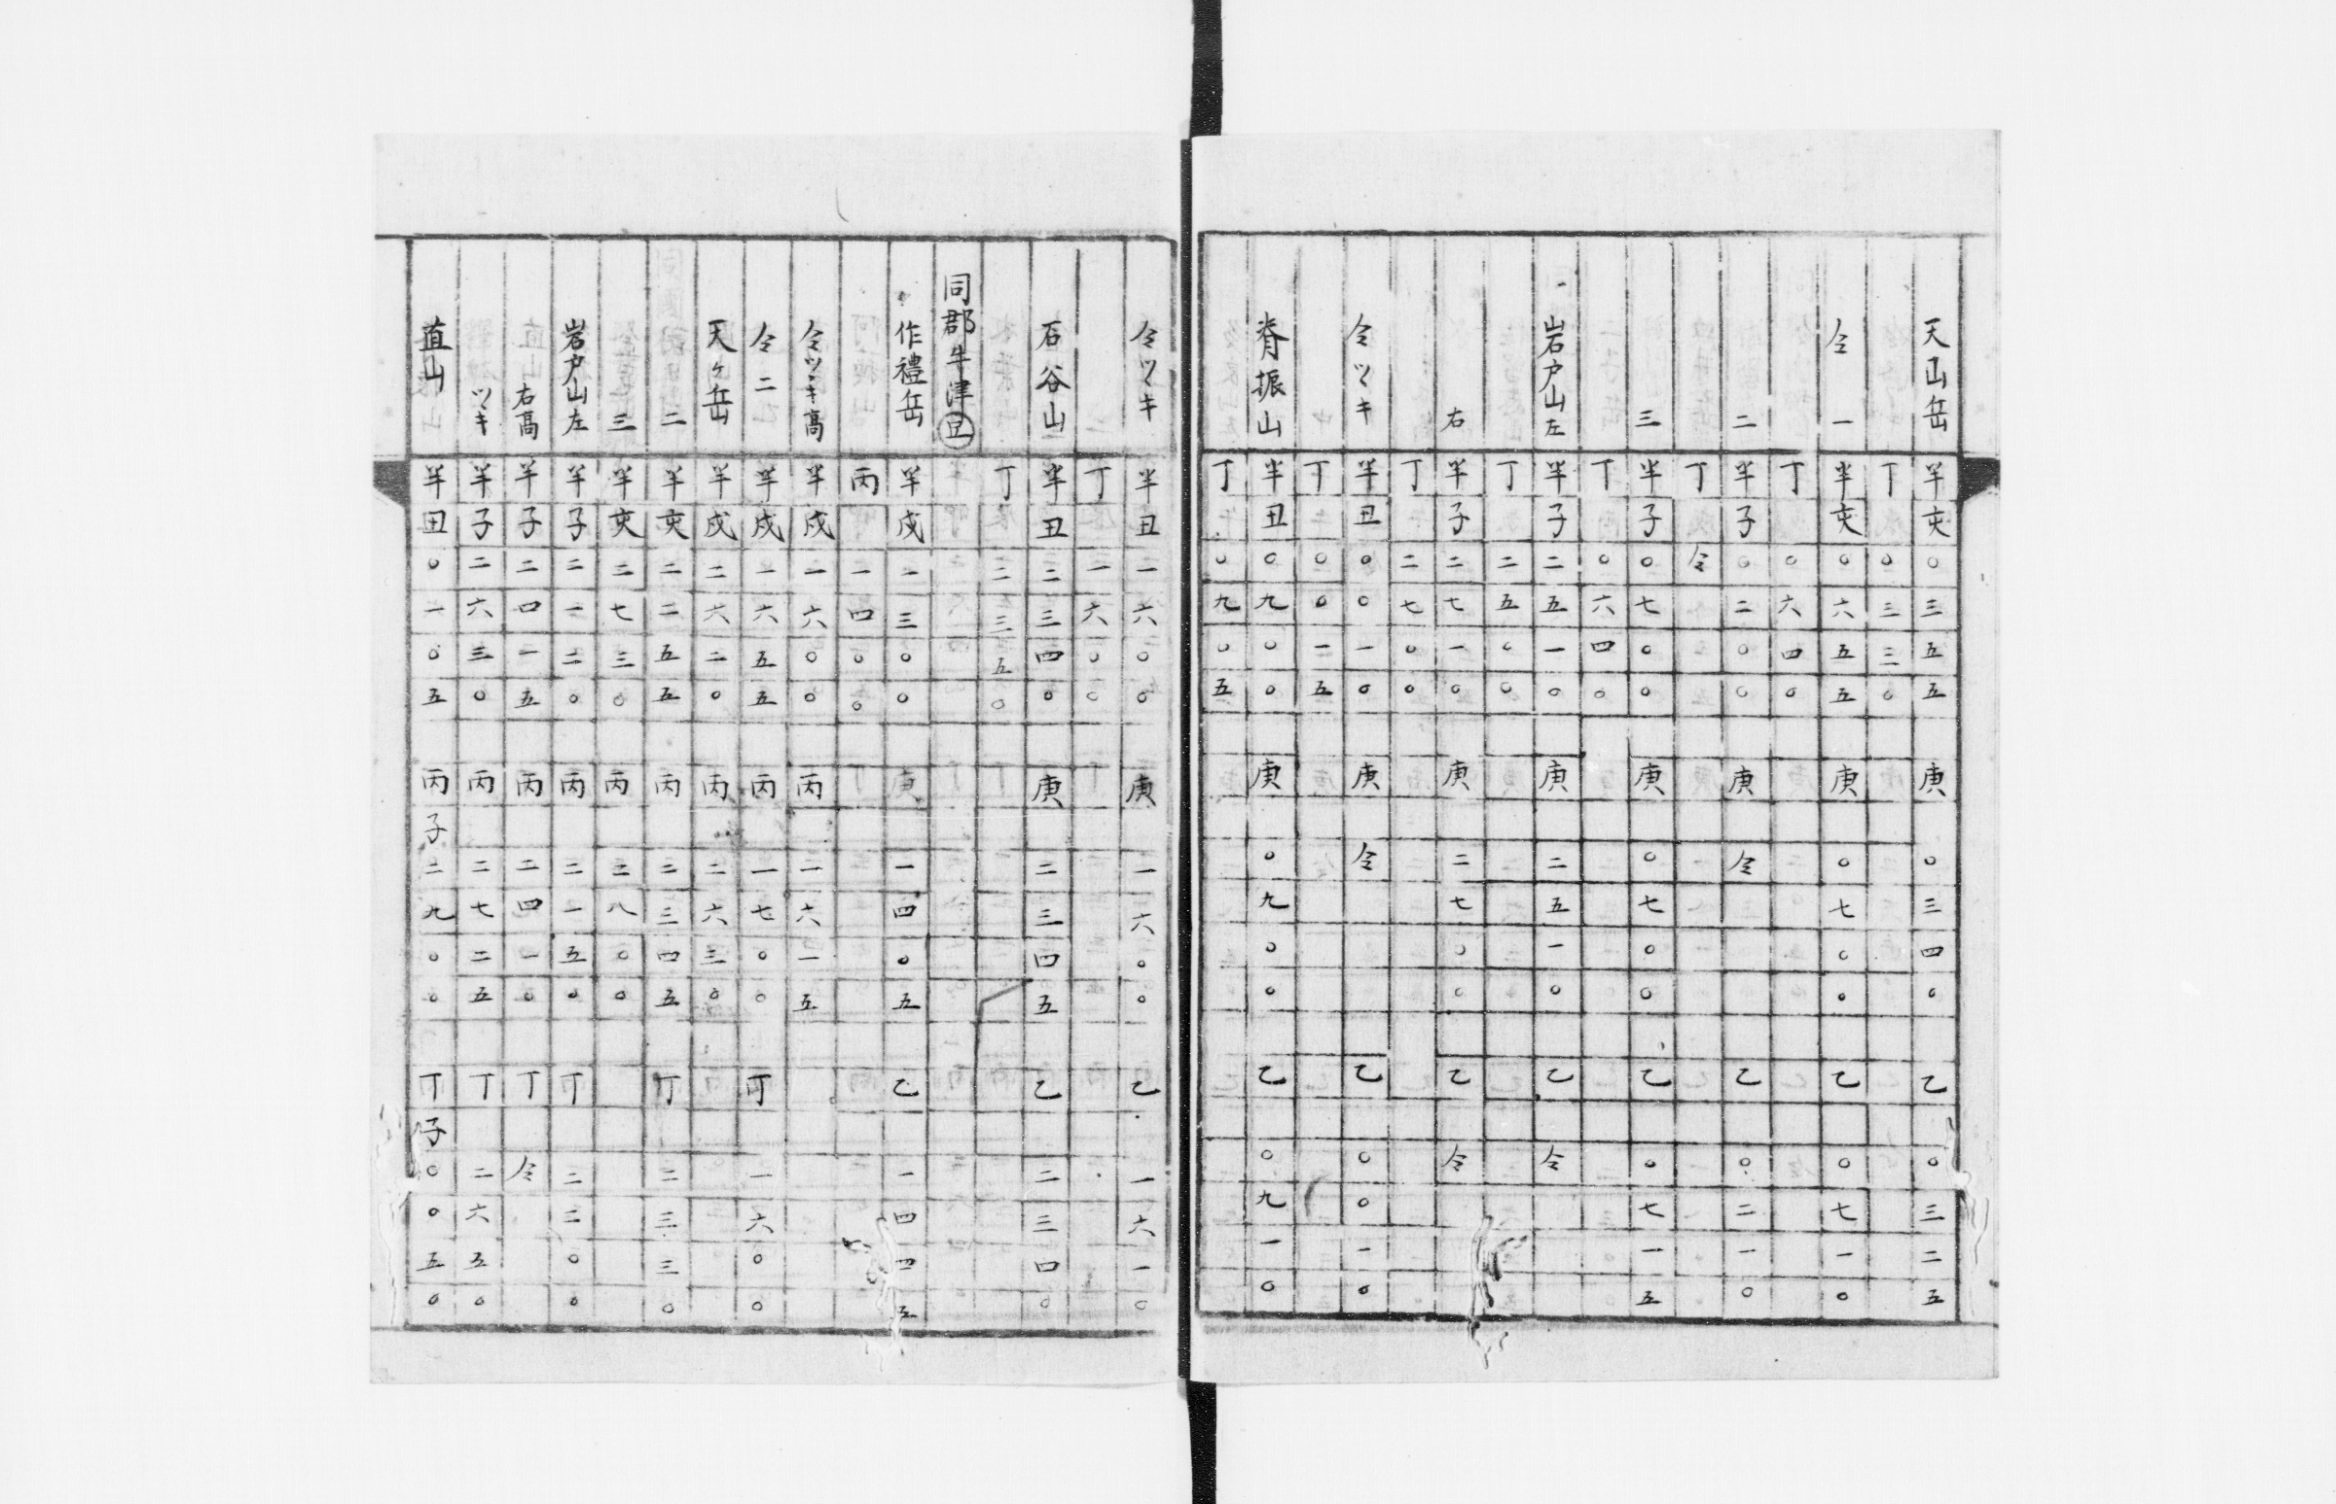 天山岳 半亥〇三五五 庚〇三四〇 乙〇三二五
丁〇三三〇
仝一 半亥〇六五五 庚〇七〇〇 乙〇七一〇
丁〇六四〇
二 半子〇二〇〇 庚仝 乙〇二一〇
丁仝
三 半子〇七〇〇 庚〇七〇〇 乙〇七一五
丁〇六四〇
岩戸山左 半子二五一〇 庚二五一〇 乙仝
丁二五〇〇
右 半子二七一〇 庚二七〇〇 乙仝
丁二七〇〇
仝ツヽキ 半丑〇〇一〇 庚仝 乙〇〇一〇
丁〇〇一五
脊振山 半丑〇九〇〇 庚〇九〇〇 乙〇九一〇
丁〇九〇五
仝ツヽキ 半丑一六〇〇 庚一六〇〇 乙一六一〇
丁一六〇〇
石谷山 半丑二三四〇 庚二三四五 乙二三四〇
丁二三五〇
同郡牛津
作禮岳 半戌一三〇〇 庚一四〇五 乙一四四五
丙一四〇〇
仝ツヽキ高 半戌一六〇〇 丙一六一五
仝二 半戌一六五五 丙一七〇〇 丁一六〇〇
天ヶ岳 半戌二六二〇 丙二六三〇
二 半亥二二五五 丙二三四五 丁二三三〇
三 半亥二七三〇 丙二八〇〇
岩戸山左 半子二一二〇 丙二一五〇 丁二二〇〇
右高 半子二四一五 丙二四一〇 丁仝
ツヽキ 半子二六三〇 丙二七二五 丁二六五〇
直山 半丑〇一〇五 丙子二九〇〇 丁子〇〇五〇